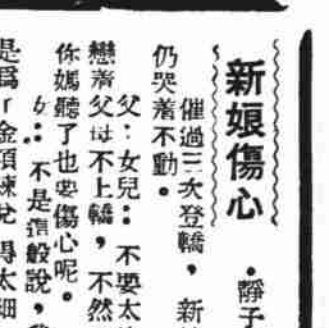 新娘傷心
·靜子
催過三次登轎，新
仍哭着不動。
父：女兒：不要太
戀着父母不上轎，不然
你媽聽了也要傷心呢。
女：不是這般說，
是爲「金項鍊兌得太細